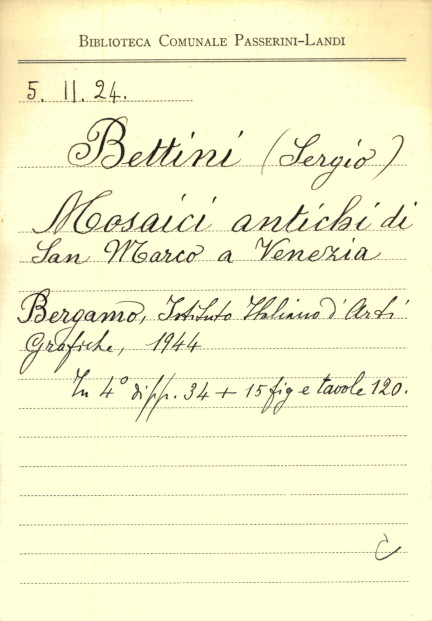 BIBLIOTECA COMUNALE PASSERINI-LANDI
5. II. 24.
Bettini (Sergio)
Mosaici antichi di
San Marco a Venezia
Bergamo, Istituto Italiano d'Arti
Grafiche, 1944
In 4° di pp. 34 + 15 fig e tavole 120.
C